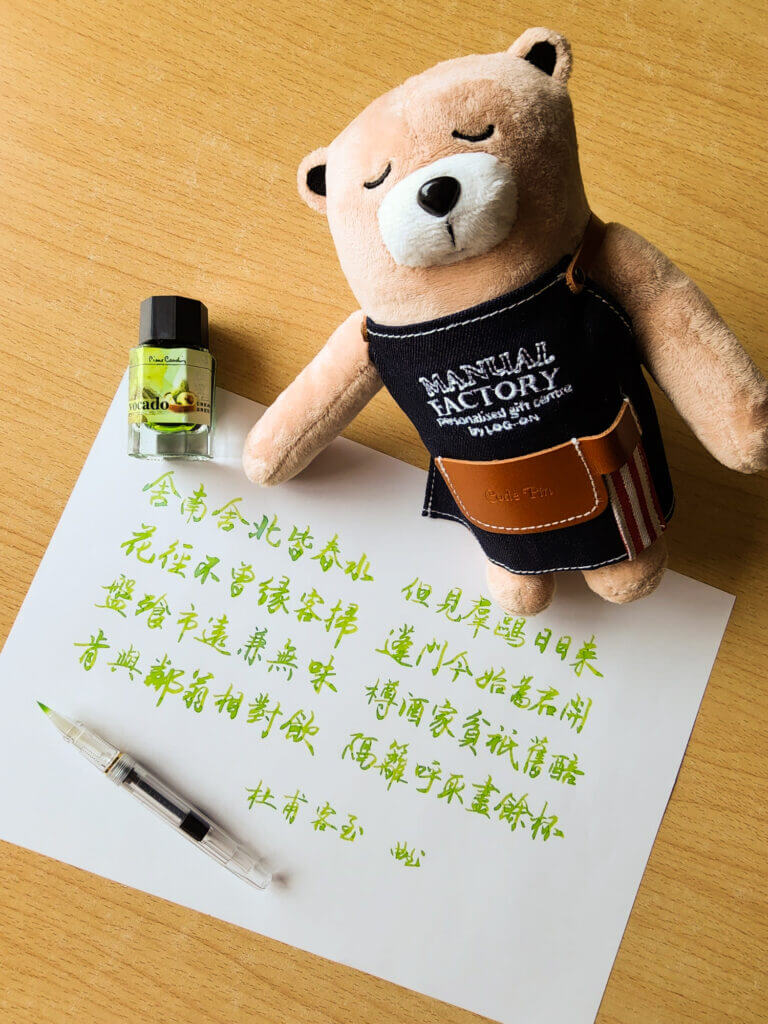 Pierre Cardin
vocado
MANUAL
FACTORY
personalised gift centre
by LOG-ON
Code Pin
舍南舍北皆春水 但見羣鷗日日來
花徑不曾緣客掃 蓬門今始為君開
盤飧市遠兼無味 樽酒家貧祇舊醅
肯與鄰翁相對飲 隔籬呼取盡餘杯
杜甫客至